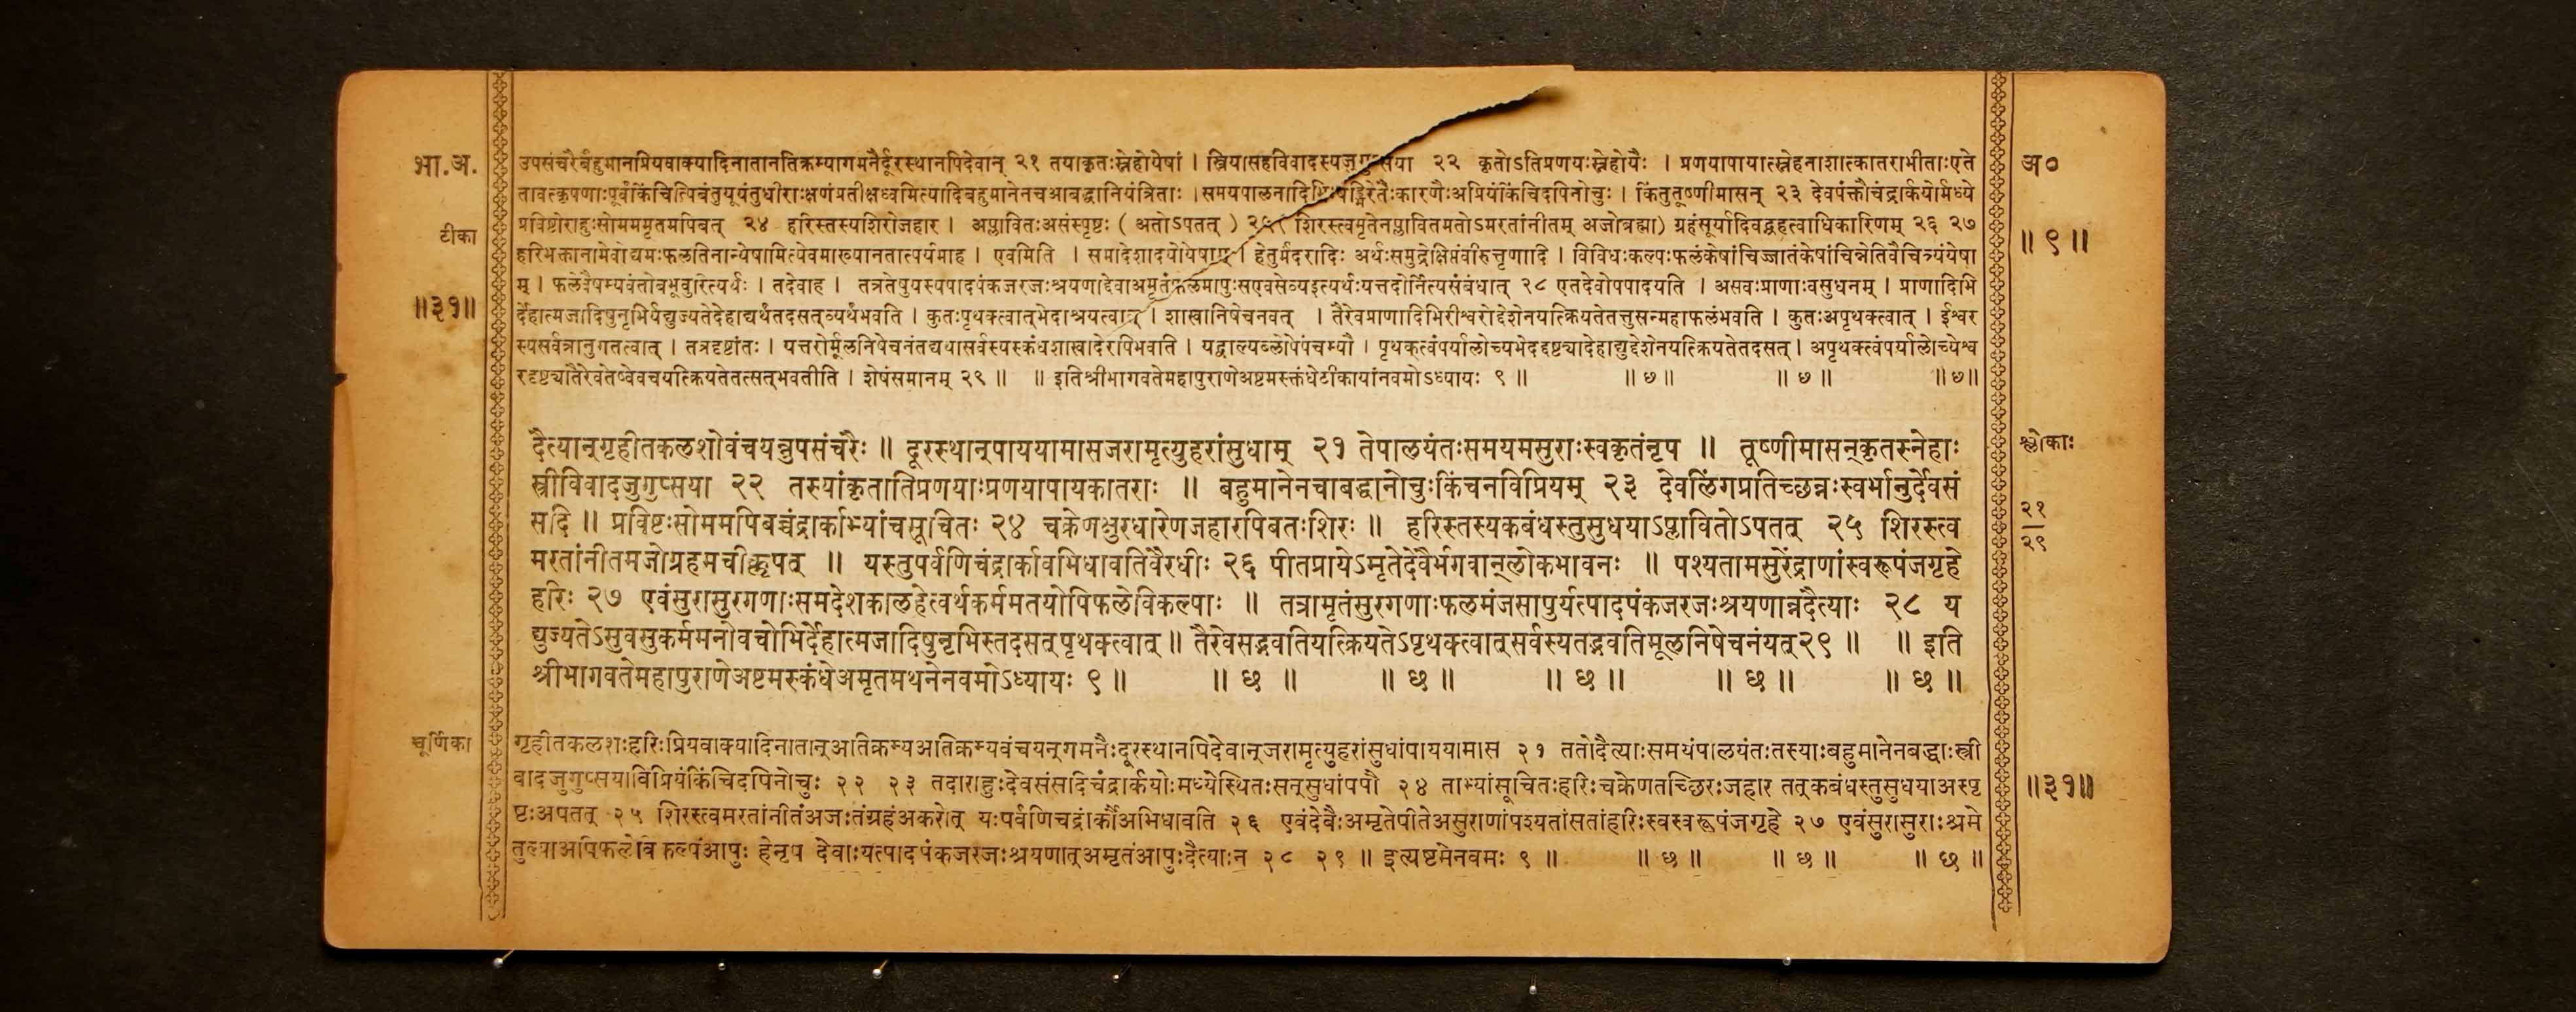 भा.अ.
टीका
॥३१॥
उपसंचरैर्बहुमानप्रियवाक्यादिनातानतिक्रम्यागमनैर्दूरस्थानपिदेवान् २१ तयाकृतःस्नेहोयेषां । स्त्रियासहविवादस्यजुगुप्सया २२ कृतोऽतिप्रणयःस्नेहोयैः । प्रणयापायात्स्नेहनाशात्कातराभीताःएते
तावत्कृपणाःपूर्वंकिंचित्पिबंतुयूयंतुधीराःक्षणंप्रतीक्षध्वमित्यादिबहुमानेनचआबद्धानियंत्रिताः । समयपालनादिभिःषड्भिरेतैःकारणैःअप्रियंकिंचिदपिनोचुः । किंतुतूष्णीमासन् २३ देवपंक्तौचंद्रार्कयोर्मध्ये
प्रविष्टोराहुःसोमममृतमपिबत् २४ हरिस्तस्यशिरोजहार । अप्लावितःअसंस्पृष्टः ( अतोऽपतत् ) २५ ( शिरस्त्वमृतेनप्लावितमतोऽमरतांनीतम् अजोब्रह्मा) ग्रहंसूर्यादिवद्ग्रहत्वाधिकारिणम् २६ २७
हरिभक्तानामेवोद्यमःफलतिनान्येषामित्येवमाख्यानतात्पर्यमाह । एवमिति । समादेशादयोयेषाम् । हेतुर्मंदरादिः अर्थःसमुद्रेक्षिप्तंवीरुत्तृणादि । विविधःकल्पःफलंकेषांचिज्जातंकेषांचिन्नेतिवैचित्र्यंयेषा
म् । फलेवैषम्यवंतोबभूवुरित्यर्थः । तदेवाह । तत्रतेपुयस्यपादपंकजरजःश्रयणाद्देवाअमृतंफलमापुःसएवसेव्यइत्यर्थःयत्तदोर्नित्यसंबंधात् २८ एतदेवोपपादयति । असवःप्राणाःवसुधनम् । प्राणादिभि
र्देहात्मजादिषुनृभिर्यद्युज्यतेदेहाद्यर्थंतदसत्व्यर्थंभवति । कुतःपृथक्त्वात्भेदाश्रयत्वात् । शाखानिषेचनवत् । तैरेवप्राणादिभिरीश्वरोद्देशेनयत्क्रियतेतत्तुसन्महाफलंभवति । कुतःअपृथक्त्वात् । ईश्वर
स्यसर्वत्रानुगतत्वात् । तत्रदृष्टांतः । यत्तरोर्मूलनिषेचनंतद्यथासर्वस्यस्कंधशाखादेरपिभवति । यद्वाल्यब्लोपेपंचम्यौ । पृथक्त्वंपर्यालोच्यभेददृष्ट्यादेहाद्युद्देशेनयत्क्रियतेतदसत् । अपृथक्त्वंपर्यालोच्येश्व
रदृष्ट्यातैरेवतेष्वेवचयत्क्रियतेतत्सत्भवतीति । शेषंसमानम् २९ ॥ ॥ इतिश्रीभागवतेमहापुराणेअष्टमस्कंधेटीकायांनवमोऽध्यायः ९ ॥ ॥ ७ ॥ ॥ ७ ॥ ॥ ७॥
अ०
॥ ९ ॥
दैत्यान्गृहीतकलशोवंचयन्नुपसंचरैः ॥ दूरस्थान्पाययामासजरामृत्युहरांसुधाम् २१ तेपालयंतःसमयमसुराःस्वकृतंनृप ॥ तूष्णीमासन्कृतस्नेहाः
स्त्रीविवादजुगुप्सया २२ तस्यांकृतातिप्रणयाःप्रणयापायकातराः ॥ बहुमानेनचाबद्धानोचुःकिंचनविप्रियम् २३ देवलिंगप्रतिच्छन्नःस्वर्भानुर्देवसं
सदि ॥ प्रविष्टःसोममपिबच्चंद्रार्काभ्यांचसूचितः २४ चक्रेणक्षुरधारेणजहारपिबतःशिरः ॥ हरिस्तस्यकबंधस्तुसुधयाऽप्लावितोऽपतत् २५ शिरस्त्व
मरतांनीतमजोग्रहमचीक्लृपत् ॥ यस्तुपर्वणिचंद्रार्कावभिधावतिवैरधीः २६ पीतप्रायेऽमृतेदेवैर्भगवान्लोकभावनः ॥ पश्यतामसुरेंद्राणांस्वरूपंजगृहे
हरिः २७ एवंसुरासुरगणाःसमदेशकालहेत्वर्थकर्ममतयोपिफलेविकल्पाः ॥ तत्रामृतंसुरगणाःफलमंजसापुर्यत्पादपंकजरजःश्रयणान्नदैत्याः २८ य
द्युज्यतेऽसुवसुकर्ममनोवचोभिर्देहात्मजादिषुनृभिस्तदसत्पृथक्त्वात् ॥ तैरेवसद्भवतियत्क्रियतेऽपृथक्त्वात्सर्वस्यतद्भवतिमूलनिषेचनंयत्२९ ॥ ॥ इति
श्रीभागवतेमहापुराणेअष्टमस्कंधेअमृतमथनेनवमोऽध्यायः ९ ॥ ॥ छ ॥ ॥ छ ॥ ॥ छ ॥ ॥ छ ॥ ॥ छ ॥
श्लोकाः
२१
२९
चूर्णिका
गृहीतकलशःहरिःप्रियवाक्यादिनातान्अतिक्रम्यअतिक्रम्यवंचयन्गमनैःदूरस्थानपिदेवान्जरामृत्युहरांसुधांपाययामास २१ ततोदैत्याःसमयंपालयंतःतस्याःबहुमानेनबद्धाःस्त्री
वादजुगुप्सयाविप्रियंकिंचिदपिनोचुः २२ २३ तदाराहुःदेवसंसादिचंद्रार्कयोःमध्येस्थितःसन्सुधांपपौ २४ ताभ्यांसूचितःहरिःचक्रेणतच्छिरःजहार तत्कबंधस्तुसुधयाअस्पृ
ष्टःअपतत् २५ शिरस्त्वमरतांनीतंअजःतंग्रहंअकरोत् यःपर्वणिचद्रांर्कौअभिधावति २६ एवंदेवैःअमृतेपीतेअसुराणांपश्यतांसतांहरिःस्वस्वरूपंजगृहे २७ एवंसुरासुराःश्रमे
तुल्याअपिफलेविकल्पंआपुः हेनृप देवाःयत्पादपंकजरजःश्रयणात्अमृतंआपुःदैत्याःन २८ २९ ॥ इत्यष्टमेनवमः ९ ॥ ॥ छ ॥ ॥ छ ॥ ॥ छ ॥
॥३१॥